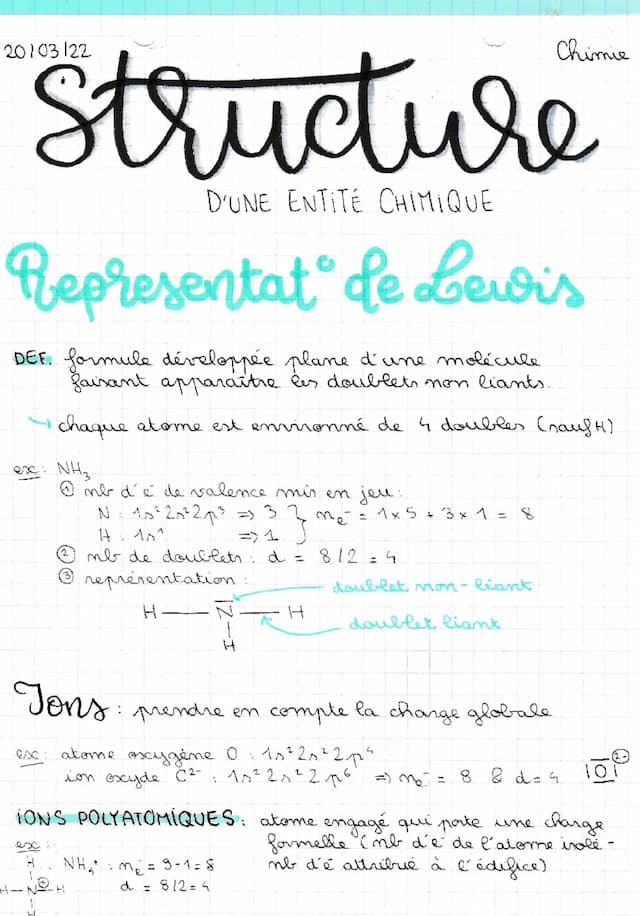 20/03/22 Chimie
Structure
D'UNE ENTITÉ CHIMIQUE
Représentat° de Lewis
DEF. formule développée plane d'une molécule
faisant apparaître les doublets non liants.
↳ chaque atome est environné de 4 doubles (sauf H)
ex: NH₃
① nb d'é de valence mis en jeu:
N: 1s²2s²2p³ => 3 } nₑ- = 1x5 + 3x1 = 8
H: 1s¹ => 1
② nb de doublets: d = 8/2 = 4
③ représentation:
doublet non-liant
H — N — H
doublet liant
H
Ions: prendre en compte la charge globale
ex: atome oxygène O: 1s²2s²2p⁴
ion oxyde C²⁻: 1s²2s²2p⁶ => nₑ- = 8 & d=4 |O| 2-
IONS POLYATOMIQUES: atome engagé qui porte une charge
formelle (nb d'é de l'atome isolé -
nb d'é attribué à l'édifice)
ex:
NH₄⁺: nₑ- = 9-1=8
d = 8/2=4
H
H—N⊕—H
H